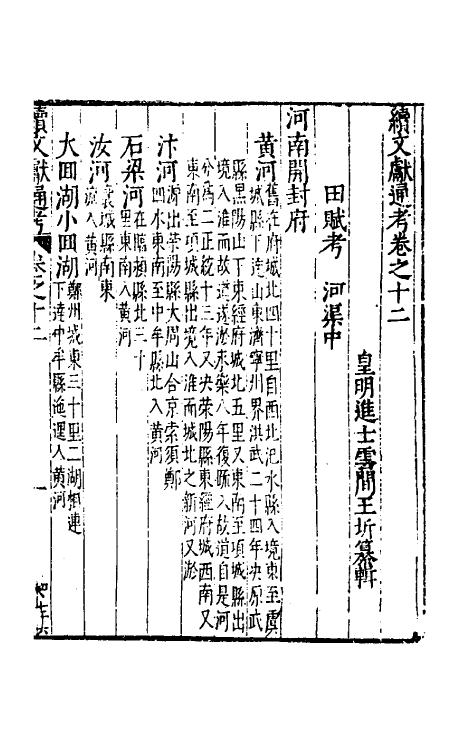 續文獻通考卷之十二
皇明進士雲間王圻纂輯
田賦考 河渠中
河南開封府
黃河舊在府城北四十里自西北汜水縣入境東至虞
城縣下達山東濟寧州界洪武二十四年决原武
縣黑陽山下東經府城北五里又東南至項城縣出
境入淮而故道遂淤永樂八年復䟽入故道自是河
分為二正統十三年又决滎陽縣東經府城西南又
東南至項城縣出境入淮而城北之新河又淤
汴河源出滎陽縣大周山合京索須鄭
四水東南至中牟縣北入黃河
石梁河在臨潁縣北三十
里東南入黃河
汝河襄城縣南東
流入黃河
大回湖小回湖鄭州城東三十里二湖相連
下達中牟縣迤邐入黃河
續文獻通考
卷之十二
一